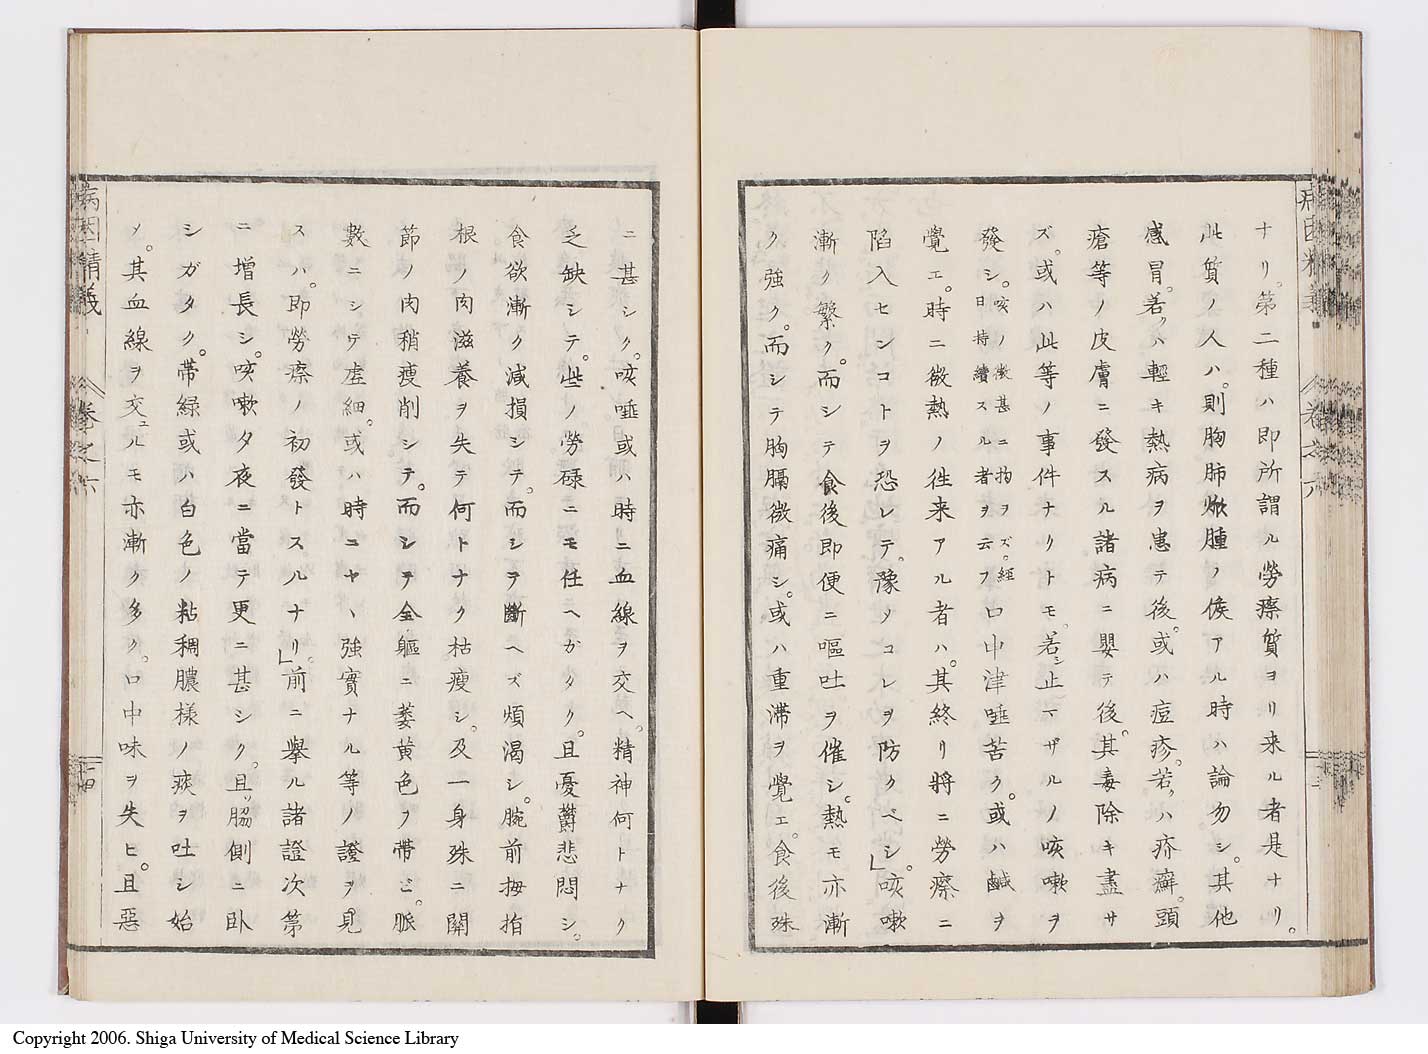 ナリ。第二種ハ即所謂ル勞瘵質ヨリ来ル者是ナリ。
此質ノ人ハ。則胸肺焮腫ノ候アル時ハ論勿シ。其他
感冒。若クハ輕キ熱病ヲ患テ後。或ハ痘疹。若クハ疥癬。頭
瘡等ノ皮膚ニ發スル諸病ニ嬰テ後。其毒除キ盡サ
ズ。或ハ此等ノ事件ナクトモ。若シ止マザルノ咳嗽ヲ
發シ。咳ノ微甚ニ拘ヲズ。經日持續スル者ヲ云フ口中津唾苦ク。或ハ鹹ヲ
覺エ。時ニ微熱ノ往来アル者ハ。其終リ將ニ勞瘵ニ
陷入センコトヲ恐レテ。豫メコレヲ防クベシ」咳嗽
漸ク繁ク。而シテ食後即便ニ嘔吐ヲ催シ。熱モ亦漸
ク強ク。而シテ胸膈微痛シ。或ハ重滞ヲ覺エ。食後殊
ニ甚シク。咳唾或ハ時ニ血線ヲ交ヘ。精神何トナク
乏缺シテ。些ノ勞碌ニモ任ヘガタク。且憂欝悲悶シ。
食欲漸ク減損シテ。而シヲ斷ヘズ煩渇シ。腕前拇指
根ノ肉滋養ヲ失テ何トナク枯痩シ。及一身殊ニ關
節ノ肉稍痩削シテ。而シテ全軀ニ萎黄色ヲ帯ビ。脈
數ニシテ虚細。或ハ時ニヤヽ強實ナル等ノ證ヲ見
スハ。即勞瘵ノ初發トスルナリ。」前ニ擧ル諸證次第
ニ增長シ。咳嗽タ夜ニ當テ更ニ甚シク。且ツ脇側ニ臥
シガタク。帯緑或ハ白色ノ粘稠膿様ノ痰ヲ吐シ始
メ。其血線ヲ交ユルモ亦漸ク多ク。口中味ヲ失ヒ。且惡
病因精義
卷之六
二十四
Copyright 2006. Shiga University of Medical Science Library